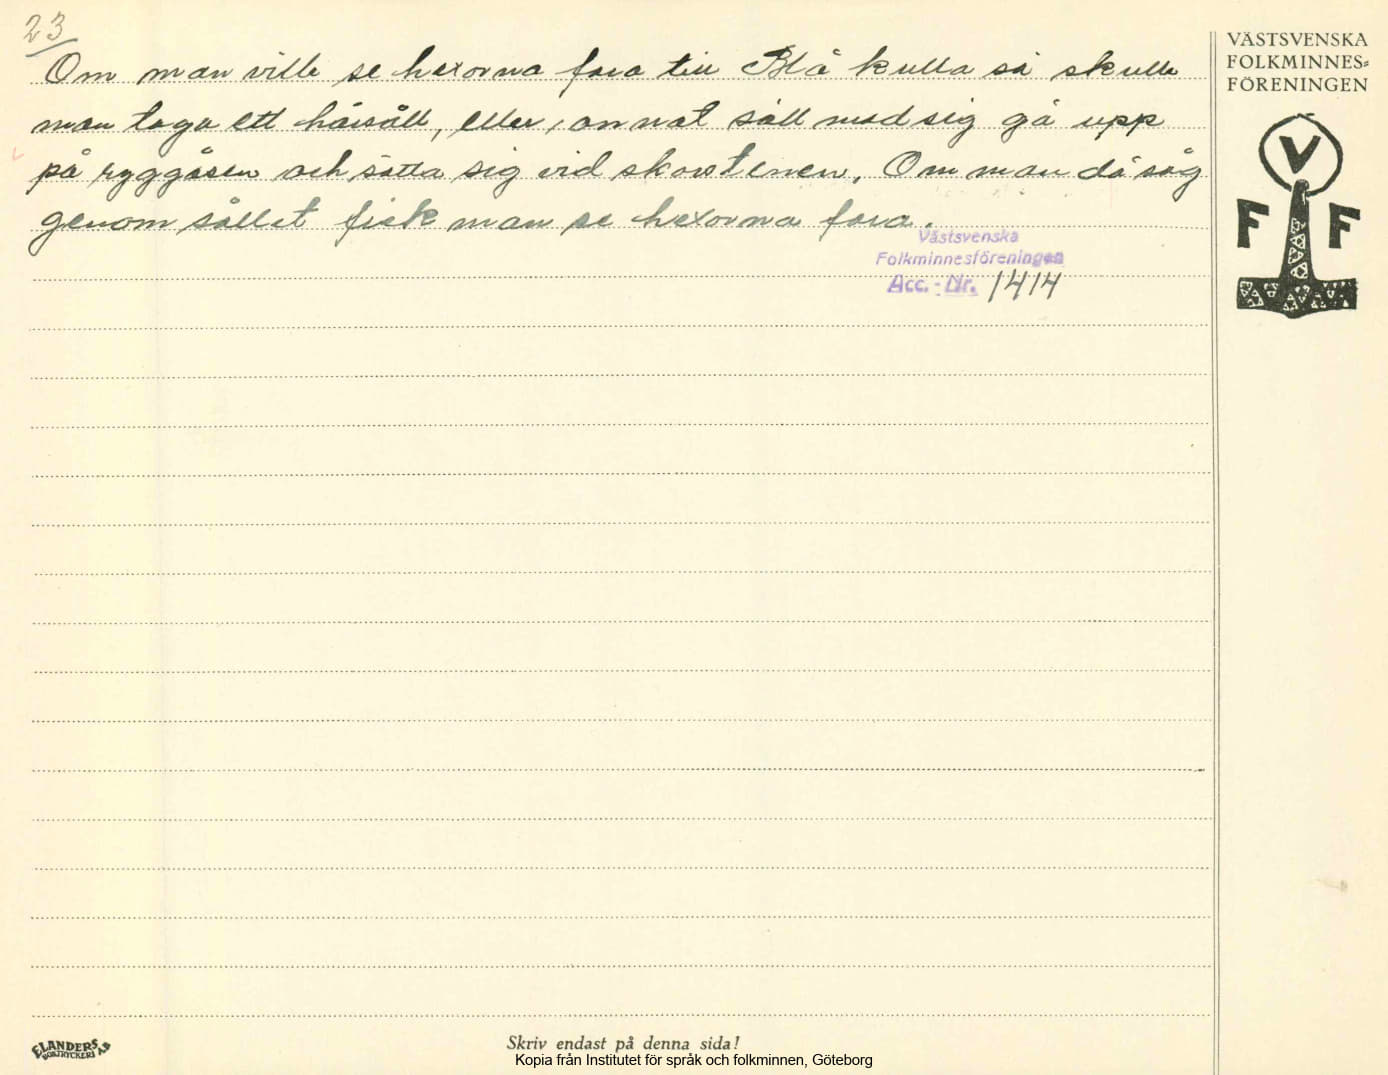 23
Om man ville se hexorna fara till Blå kulla så skulle
man taga ett hårsåll, eller, annat såll med sig gå upp
på ryggåsen och sätta sig vid skorstenen. Om man då såg
genom sållet fick man se hexorna fara.
Västsvenska
Folkminnesföreningen
Acc. - Nr. 1414
VÄSTSVENSKA
FOLKMINNES=
FÖRENINGEN
V
F F
ELANDERS
BOKTRYCKERI A.B
Skriv endast på denna sida!
Kopia från Institutet för språk och folkminnen, Göteborg